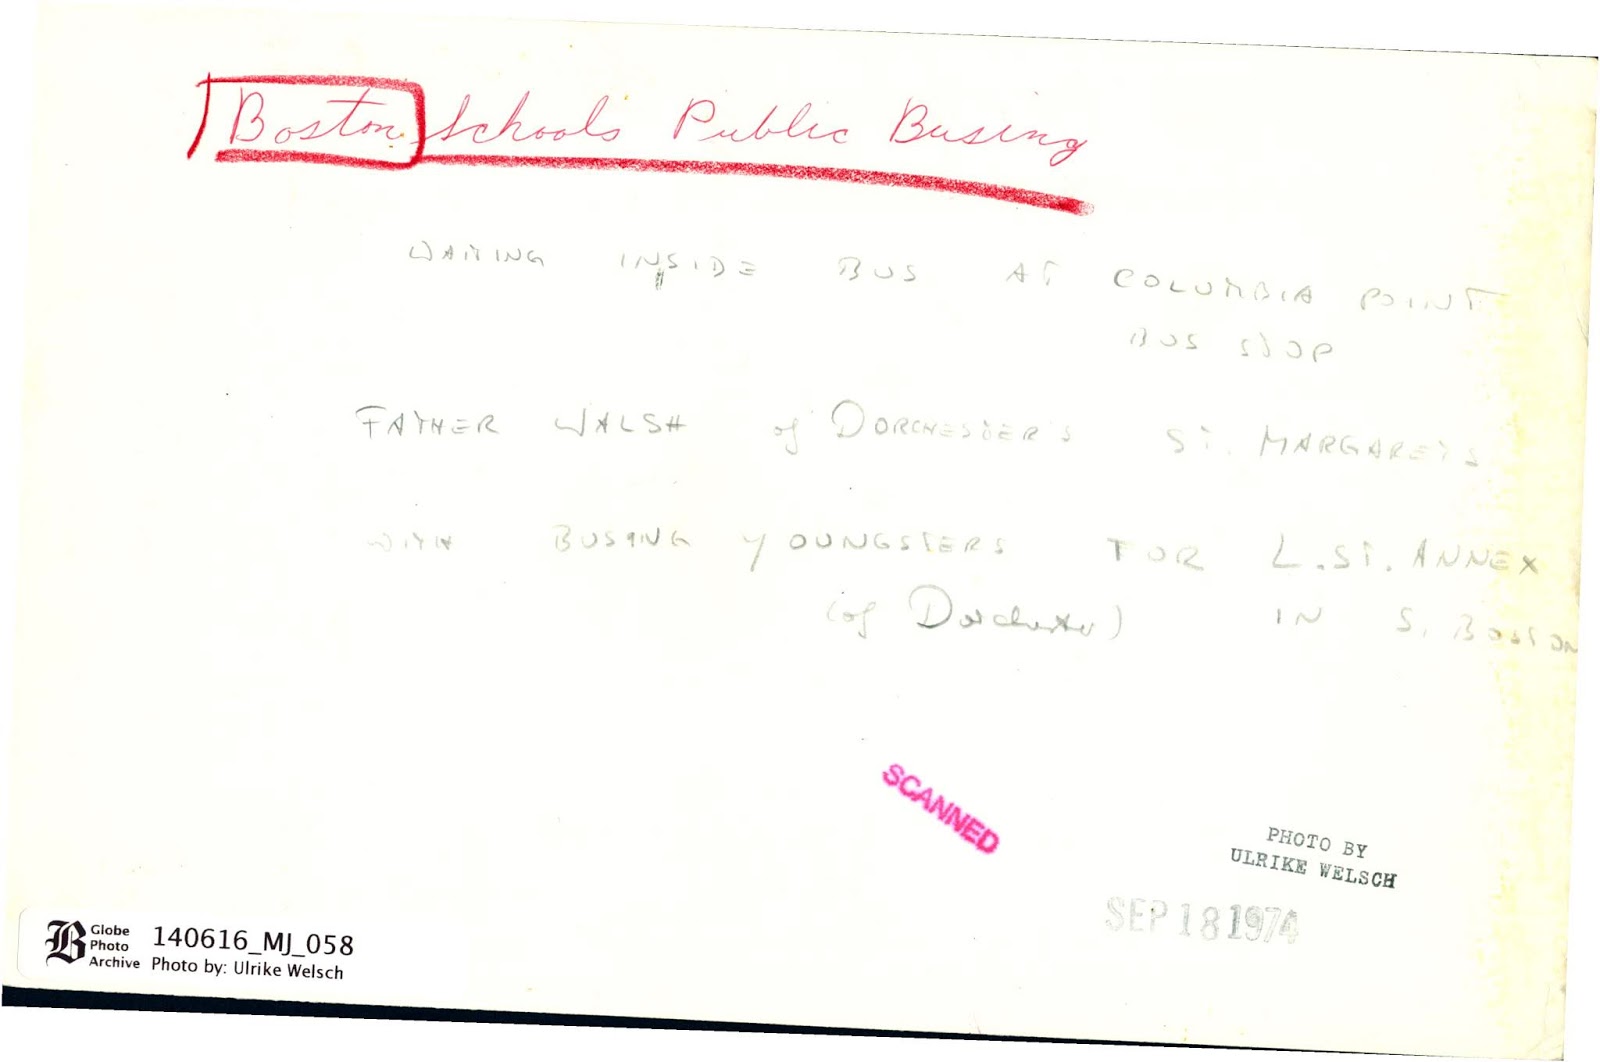 Boston Schools Public Busing
WAITING INSIDE BUS AT COLUMBIA POINT
BUS STOP
FATHER WALSH of DORCHESTER'S ST. MARGARET'S
WITH BUSING YOUNGSTERS FOR L. ST. ANNEX
(of Dorchester) IN S. BOSTON
SCANNED
PHOTO BY
ULRIKE WELSCH
SEP 18 1974
B Globe
Photo
Archive
140616_MJ_058
Photo by: Ulrike Welsch